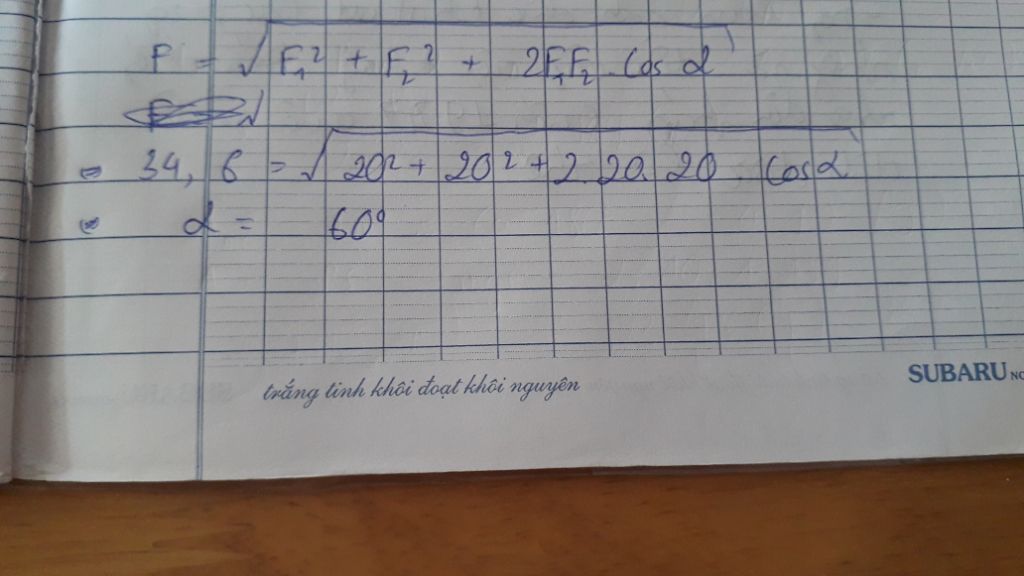 F = √F₁² + F₂² + 2F₁F₂ . Cos α
= 34, 6 = √20² + 20² + 2. 20. 20 . Cos α
= α = 60°
trắng tinh khôi đoạt khôi nguyên
SUBARU